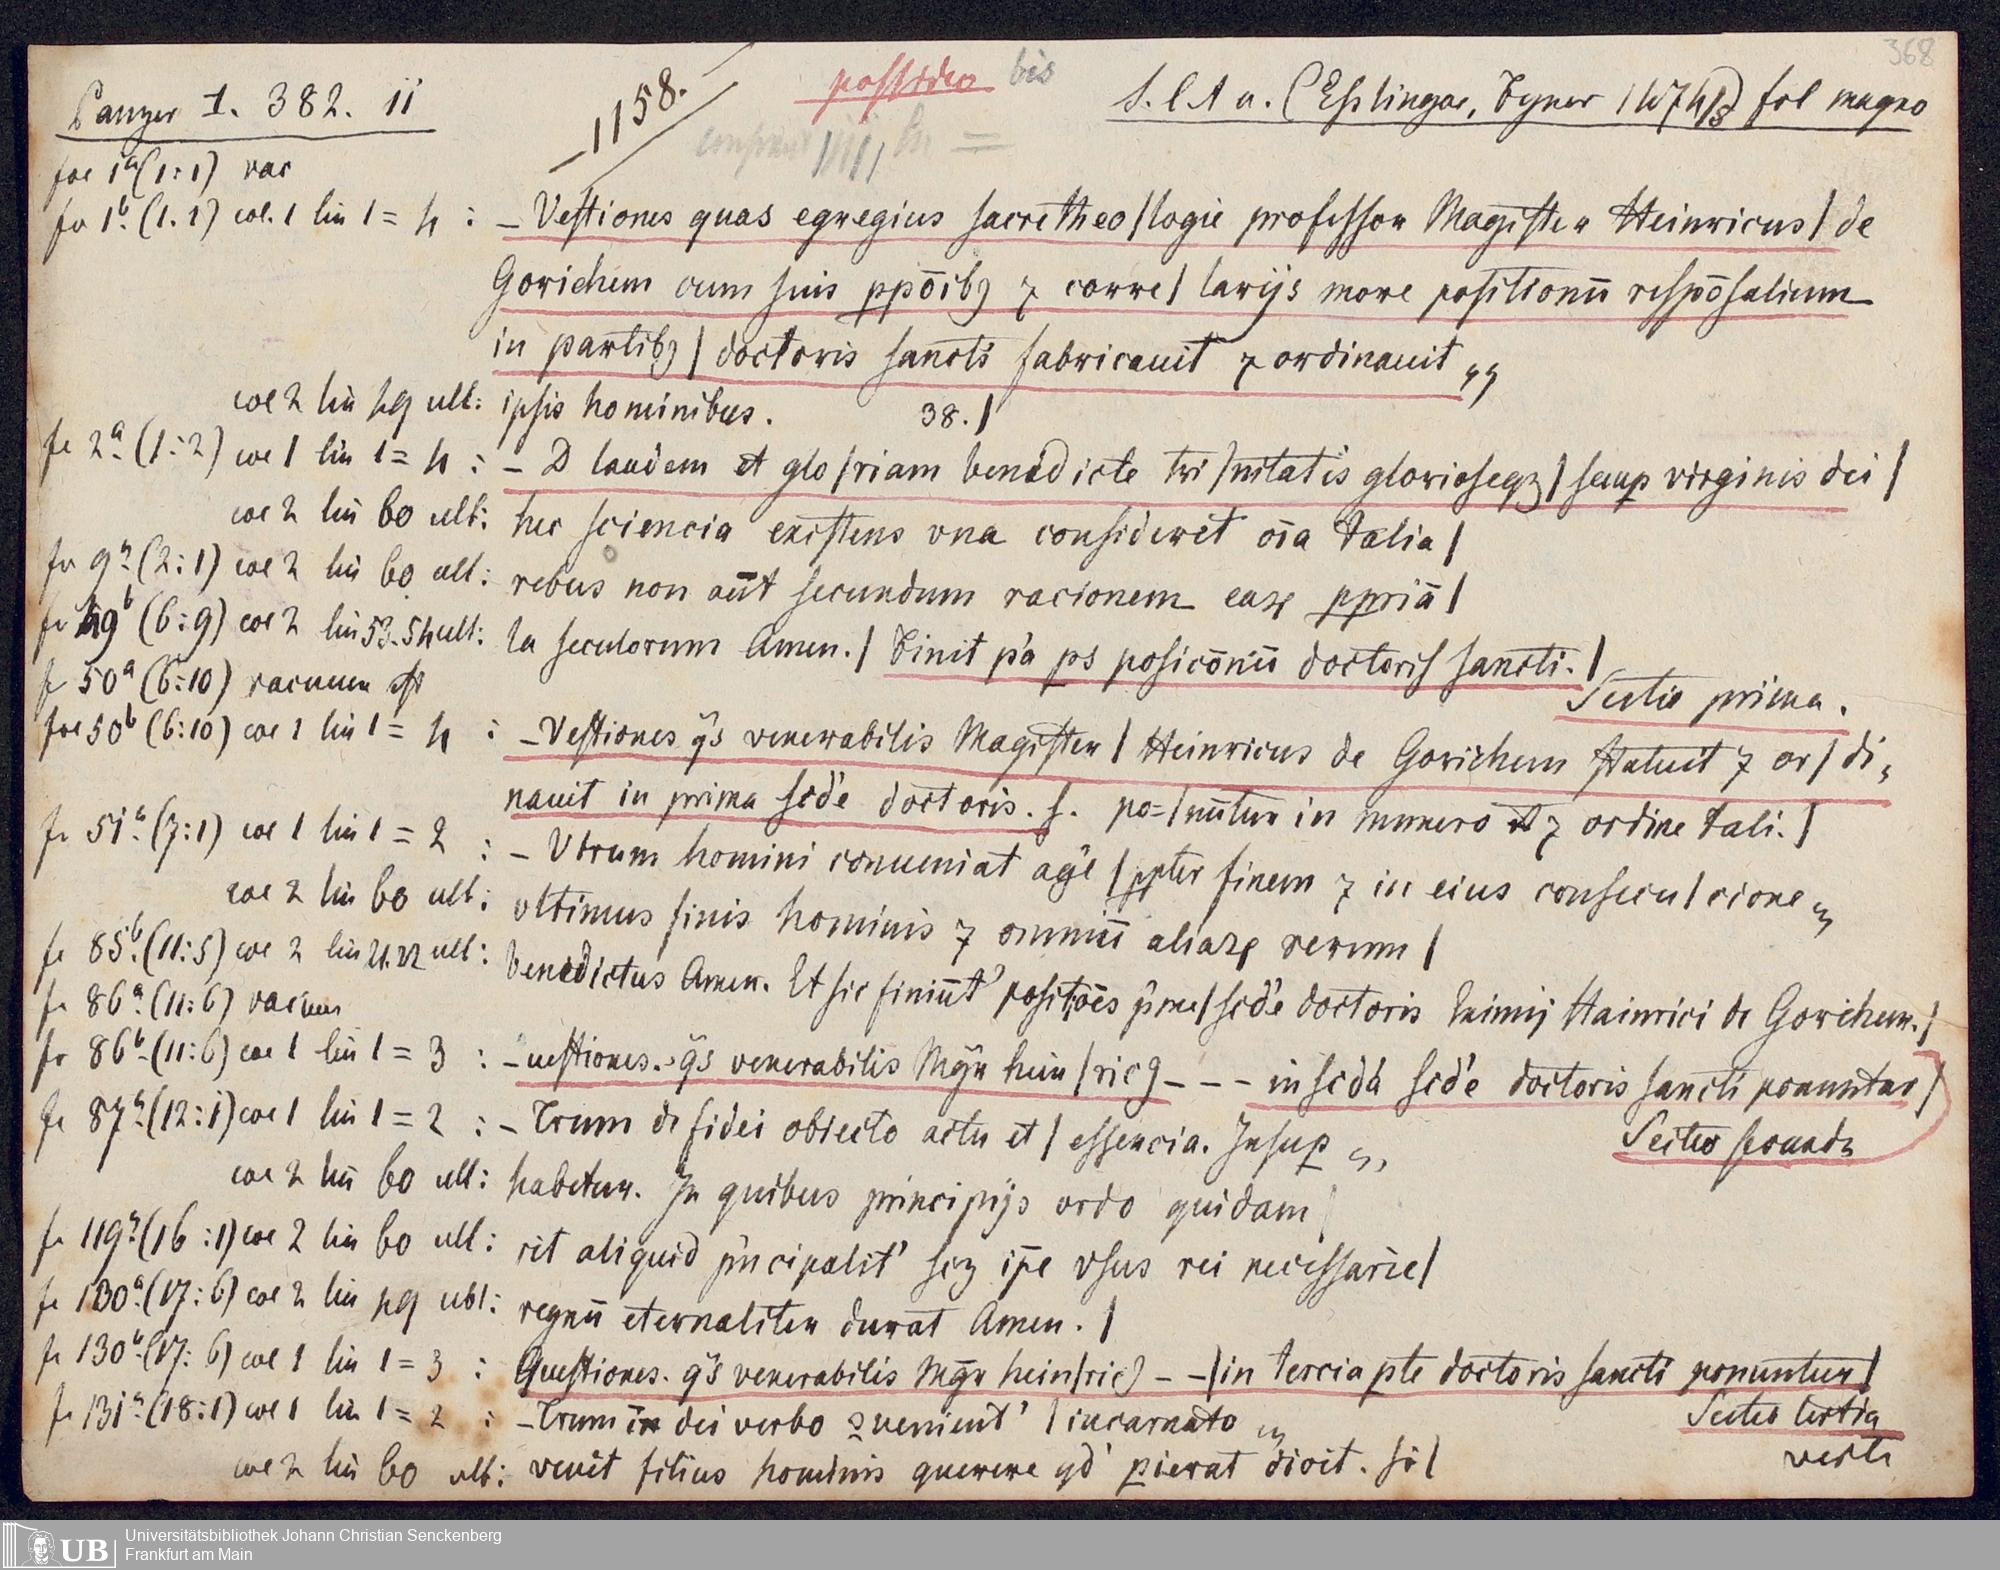 368
Panzer I. 382. 11
1158.
possideo bis
S. l. A u. (Esslingae, Fyner 1474/5) fol magno
fol 1a (1:1) vac
fo 1b. (1.1) col. 1 lin 1 = 4 : _Vestiones quas egregius sacre theo/logie professor Magister Heinricus/ de
Gorichem cum suis ppōib9 7 corre/ larijs more positionū respōsalium
in partib9 / doctoris sancti fabricauit 7 ordinauit „
col 2 lin 49 ult: ipsis hominibus. 38./
fo 2a (1:2) col 1 lin 1 = 4 : _ D laudem et glo/riam benedicte tri/nitatis glorioseqz/ semp virginis dei /
col 2 lin 60 ult: hec sciencia existens vna consideret oīa talia/
fo 9a (2:1) col 2 lin 60 ult: rebus non aūt secundum racionem eaꝝ ppriā/
fo 49b (6:9) col 2 lin 53-54 ult: la seculorum Amen./ Finit p'a ps posicōnū doctoris sancti./
fo 50a (6:10) vacuum est
Sectio prima.
fol 50b (6:10) col 1 lin 1 = 4 : _Vestiones q̄s venerabilis Magister / Heinricus de Gorichem statuit 7 or/ di-
nauit in prima scd'e doctoris. s. po=/nūtur in numero 7 ordine tali./
fo 51a (7:1) col 1 lin 1 = 2 : _ Vtrum homini conueniat ag'e /ppter finem 7 in eius consecu/cione „
col 2 lin 60 ult: vltimus finis hominis 7 omniū aliaꝝ rerum/
fo 85b (11:5) col 2 lin 21.22 ult: benedictus Amen. Et sic finiūt' positōēs p'me/ scd'e doctoris Eximij Hainrici de Gorichem./
fo 86a (11:6) vacuum
fo 86b (11:6) col 1 lin 1 = 3 : _uestiones. q̄s venerabilis Mgr̄ hein/ric9 - - - in scd'a scd'e doctoris sancti ponuntur/
fo 87a (12:1) col 1 lin 1 = 2 : _ Trum de fidei obiecto actu et / essencia. Insup „
Sectio secunda
col 2 lin 60 ult: habetur. In quibus principijs ordo quidam/
fo 119a (16:1) col 2 lin 60 ult: cit aliquid p'ncipalit' scz ip̄e vsus rei necessarie/
fo 130a (17:6) col 2 lin 49 ult: regnū eternaliter durat Amen. /
fo 130b (17:6) col 1 lin 1 = 3 : Questiones. q̄s venerabilis Mgr̄ hein/ric9 - -/in tercia pte doctoris sancti ponuntur/
fo 131a (18:1) col 1 lin 1 = 2 : _Trum dei verbo ꝯuenient' / incarnato „
Sectio tertia
col 2 lin 60 ult: venit filius hominis querere qd' pierat dicit. sā/
verte
UB
Universitätsbibliothek Johann Christian Senckenberg
Frankfurt am Main